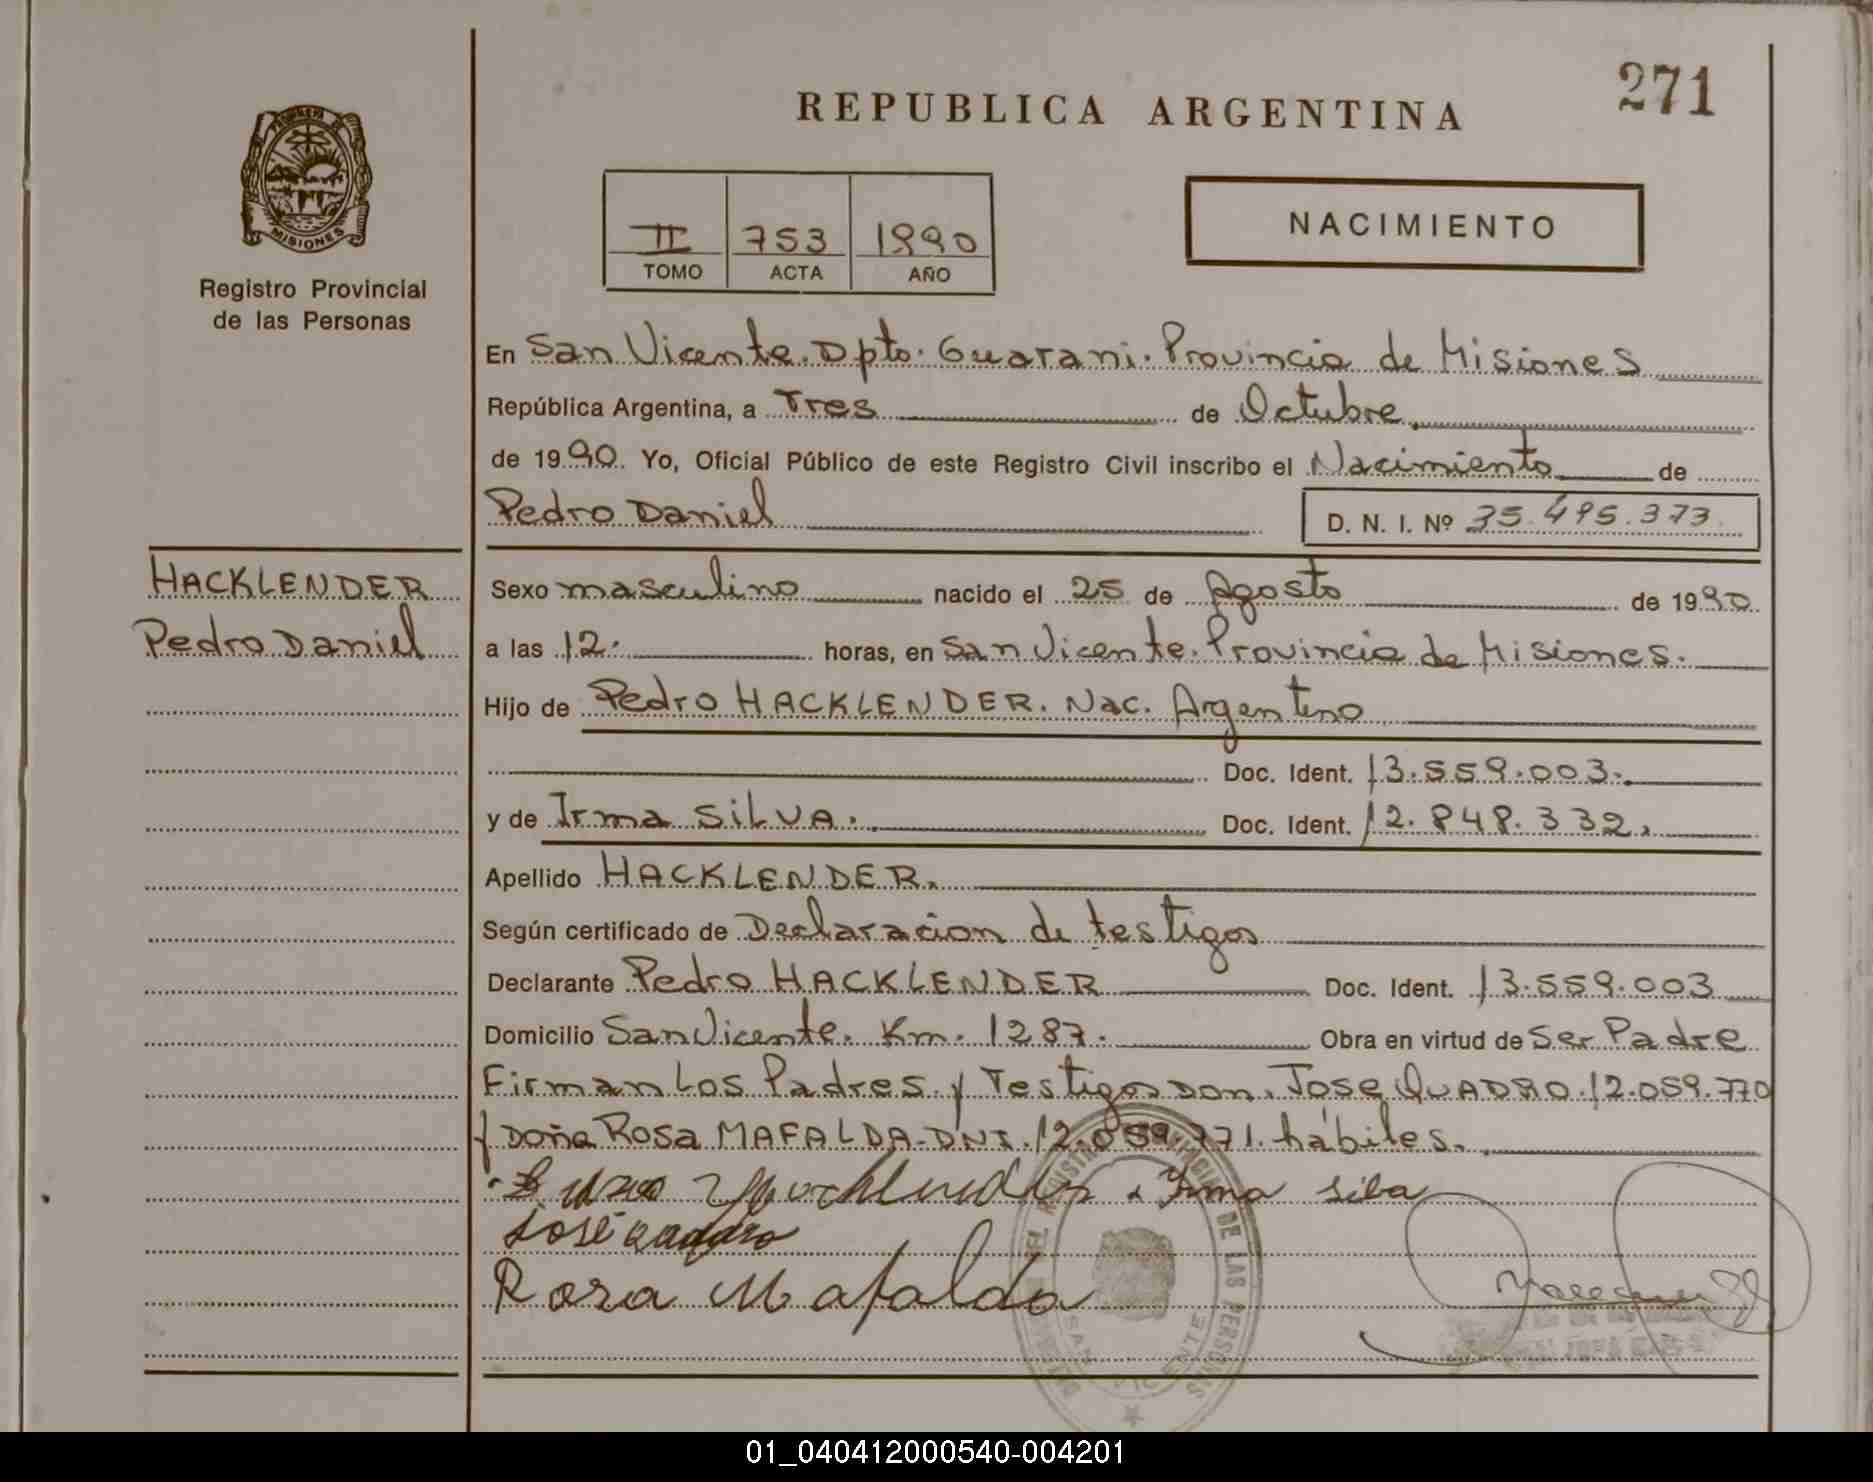 271
REPUBLICA ARGENTINA
PROVINCIA DE
MISIONES
Registro Provincial
de las Personas
II 753 1990
TOMO ACTA AÑO
NACIMIENTO
En San Vicente. Dpto. Guarani. Provincia de Misiones
República Argentina, a Tres de Octubre
de 1990. Yo, Oficial Público de este Registro Civil inscribo el Nacimiento de
Pedro Daniel D. N. I. Nº 35.495.373.
HACKLENDER
Pedro Daniel
Sexo masculino nacido el 25 de Agosto de 1990
a las 12. horas, en San Vicente. Provincia de Misiones.
Hijo de Pedro HACKLENDER. Nac. Argentino
Doc. Ident. 13.559.003.
y de Irma SILVA. Doc. Ident. 12.848.332.
Apellido HACKLENDER.
Según certificado de Declaracion de testigos
Declarante Pedro HACKLENDER Doc. Ident. 13.559.003
Domicilio San Vicente. Km. 1287. Obra en virtud de Ser Padre
Firman Los Padres y Testigos Don. Jose QUADRO. 12.059.770
y Doña Rosa MAFALDA. DNI. 12.059.771. hábiles.
Irma silva
José quadro
Rosa Mafalda
DE LAS PERSONAS
SAN VICENTE
01_040412000540-004201